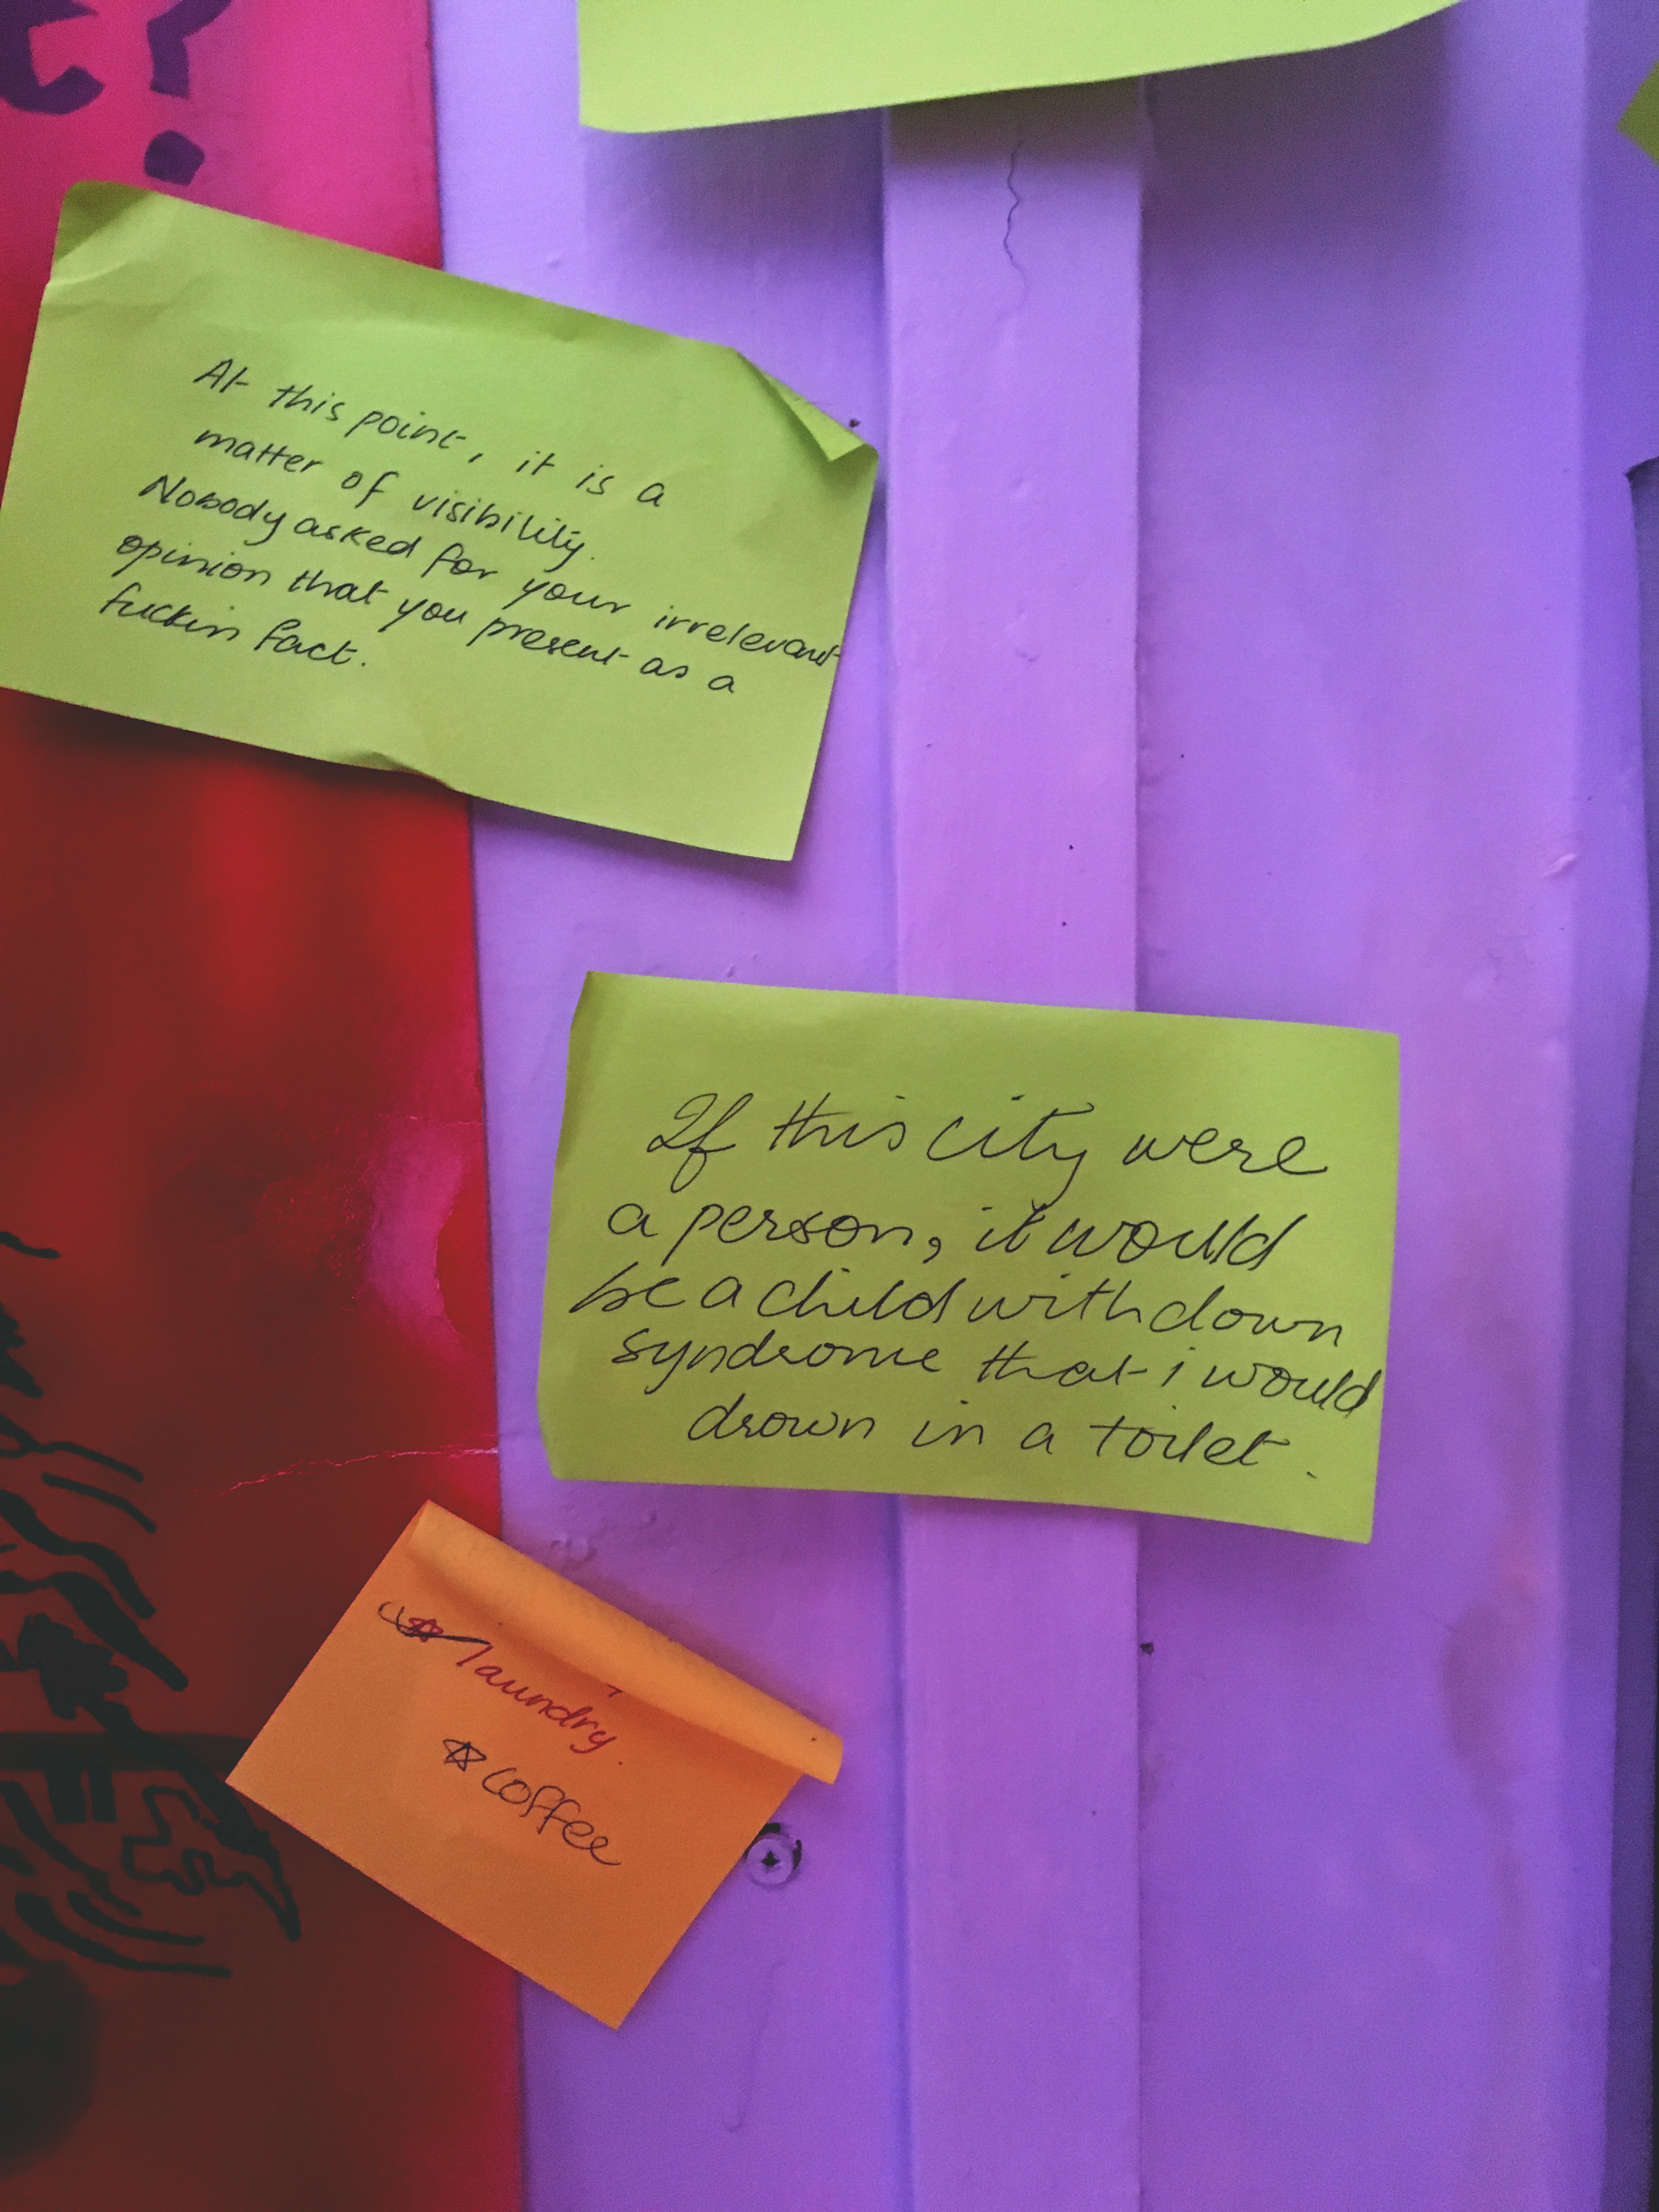 t?
At this point, it is a
matter of visibility.
Nobody asked for your irrelevant
opinion that you present as a
fuckin fact.
If this city were
a person, it would
be a child with down
syndrome that i would
drown in a toilet.
laundry.
coffee